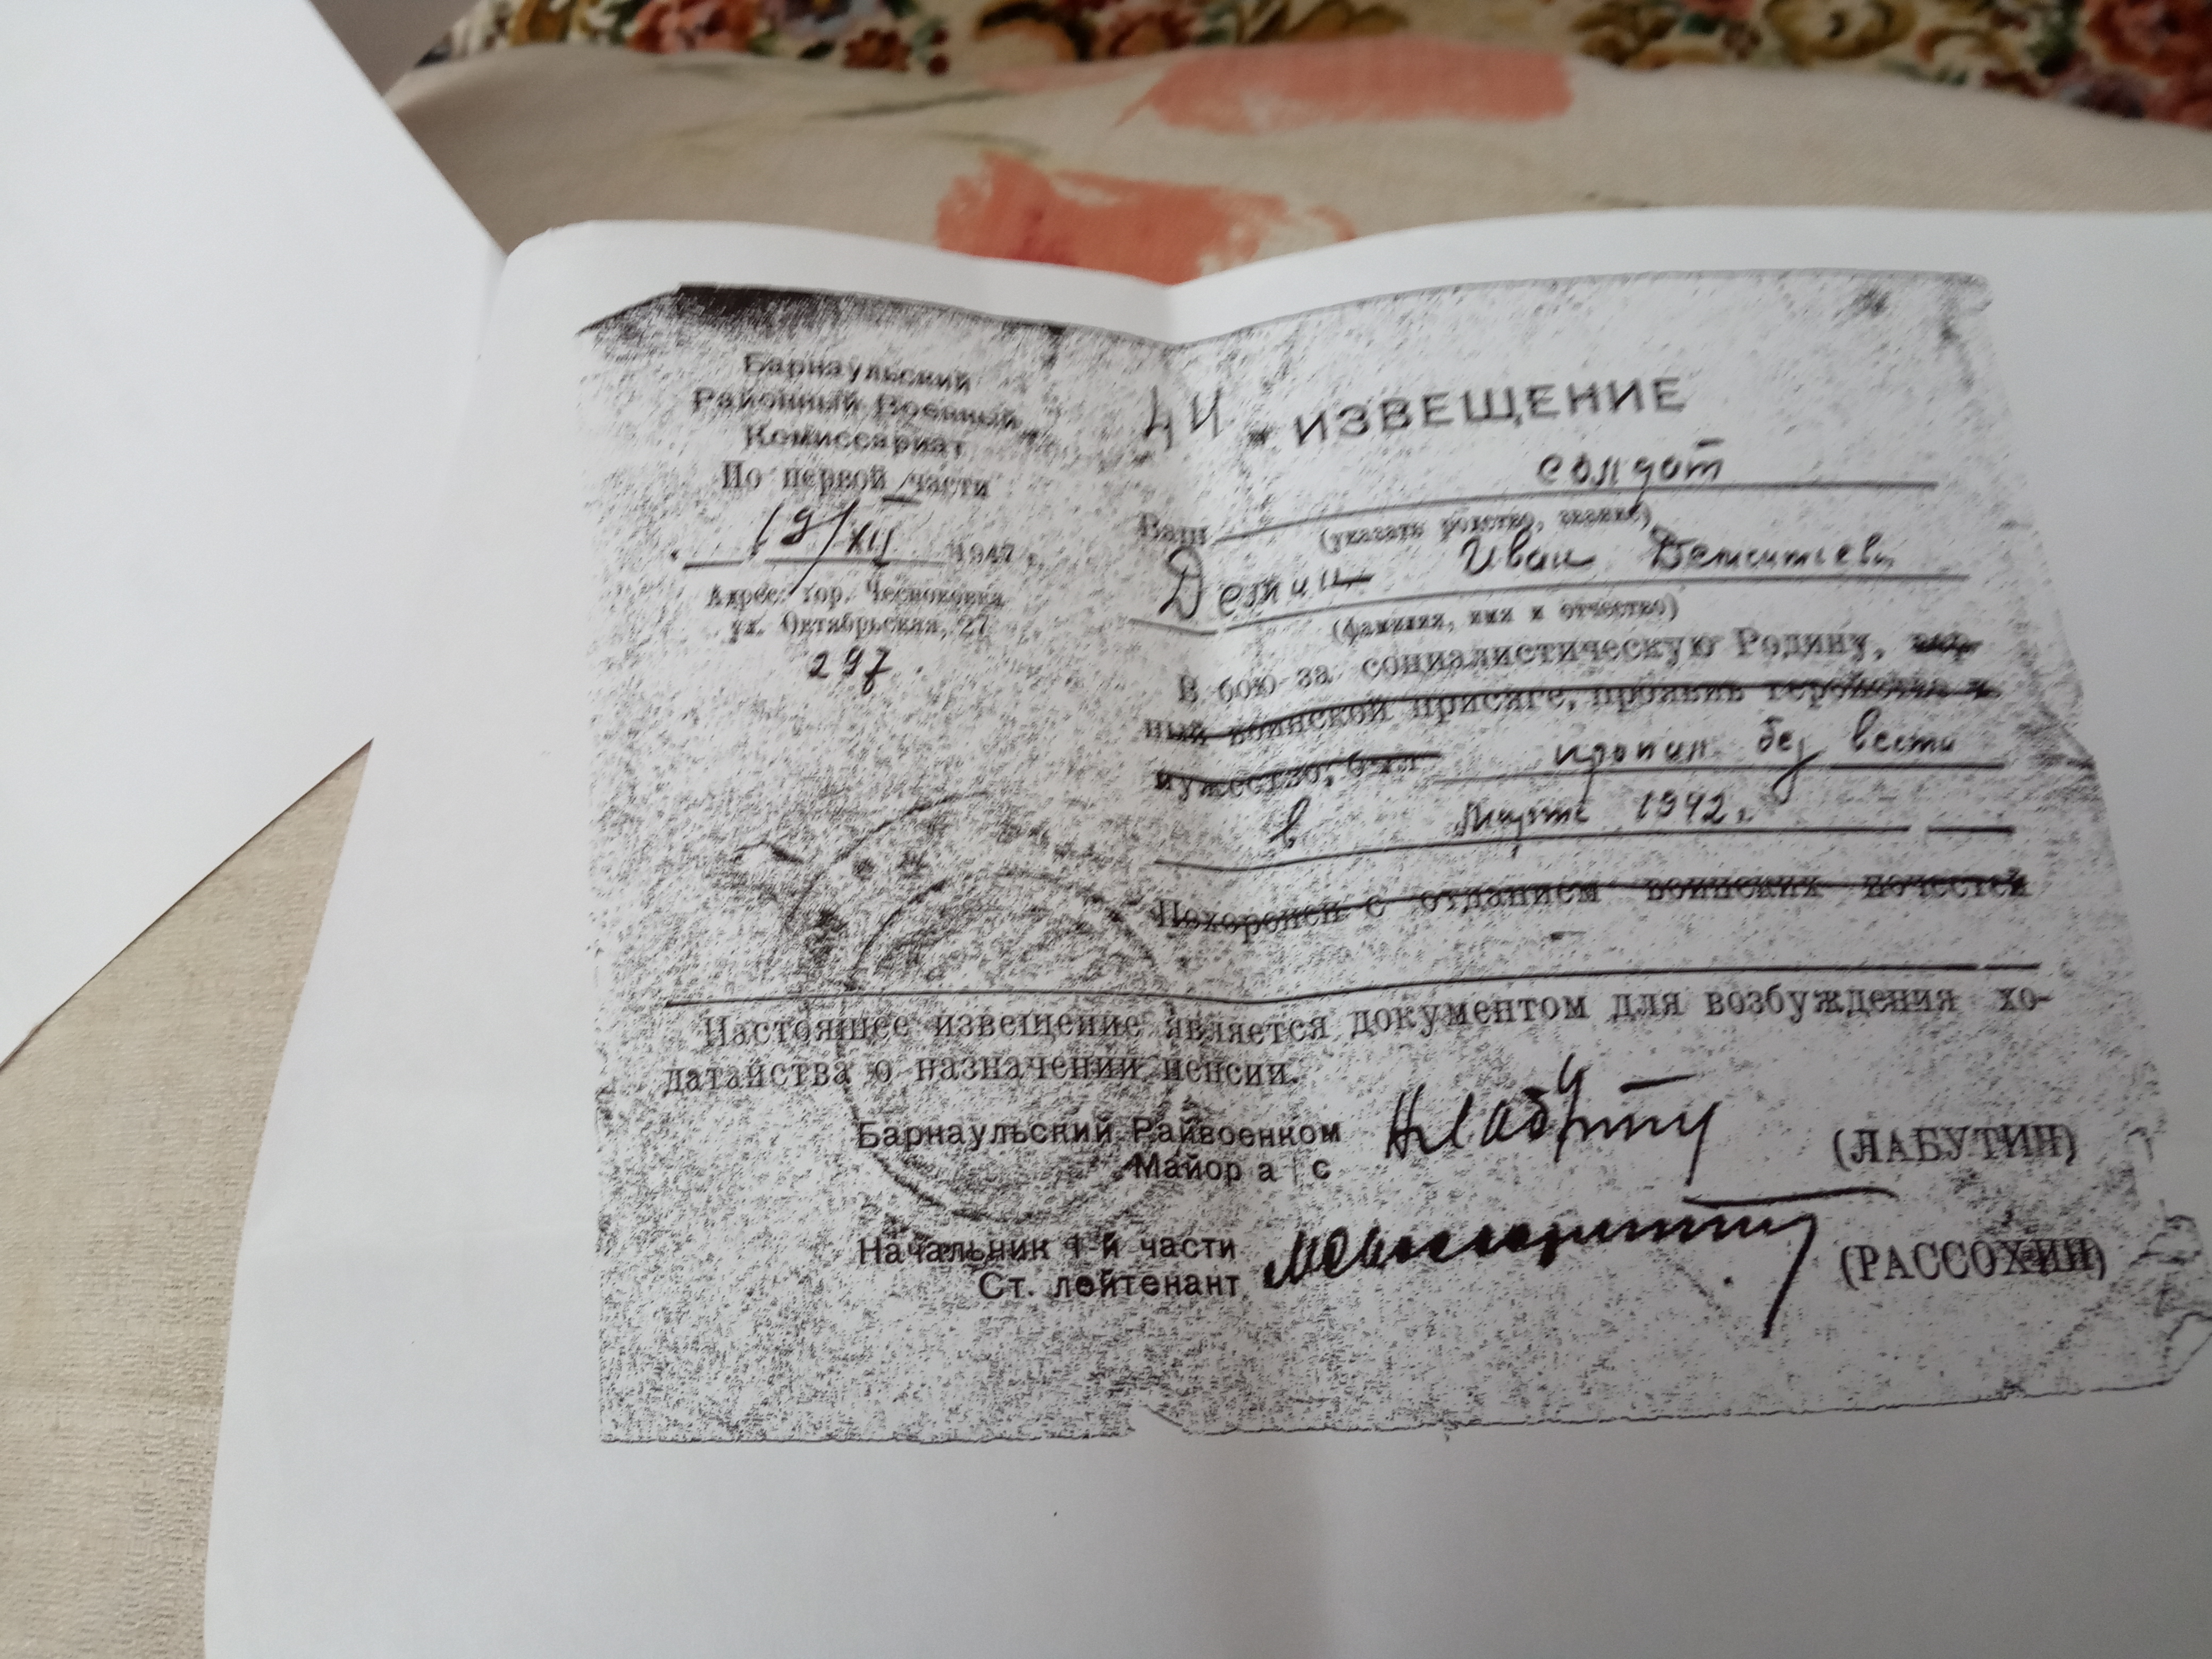 Барнаульский
Районный Военный
Комиссариат
По первой части
19/XII 1947 г.
Адрес: гор. Чесноковка
ул. Октябрьская, 27
297.
ИЗВЕЩЕНИЕ
солдат
Ваш
(указать родство, звание)
Иван
(фамилия, имя и отчество)
В бою за социалистическую Родину, вер-
ный воинской присяге, проявив геройство и
мужество, был пропал без вести
в Марте 1942 г.
Похоронен с отданием воинских почестей
Настоящее извещение является документом для возбуждения хо-
датайства о назначении пенсии.
Барнаульский Райвоенком
Майор а/с
(ЛАБУТИН)
Начальник 1-й части
Ст. лейтенант
(РАССОХИН)